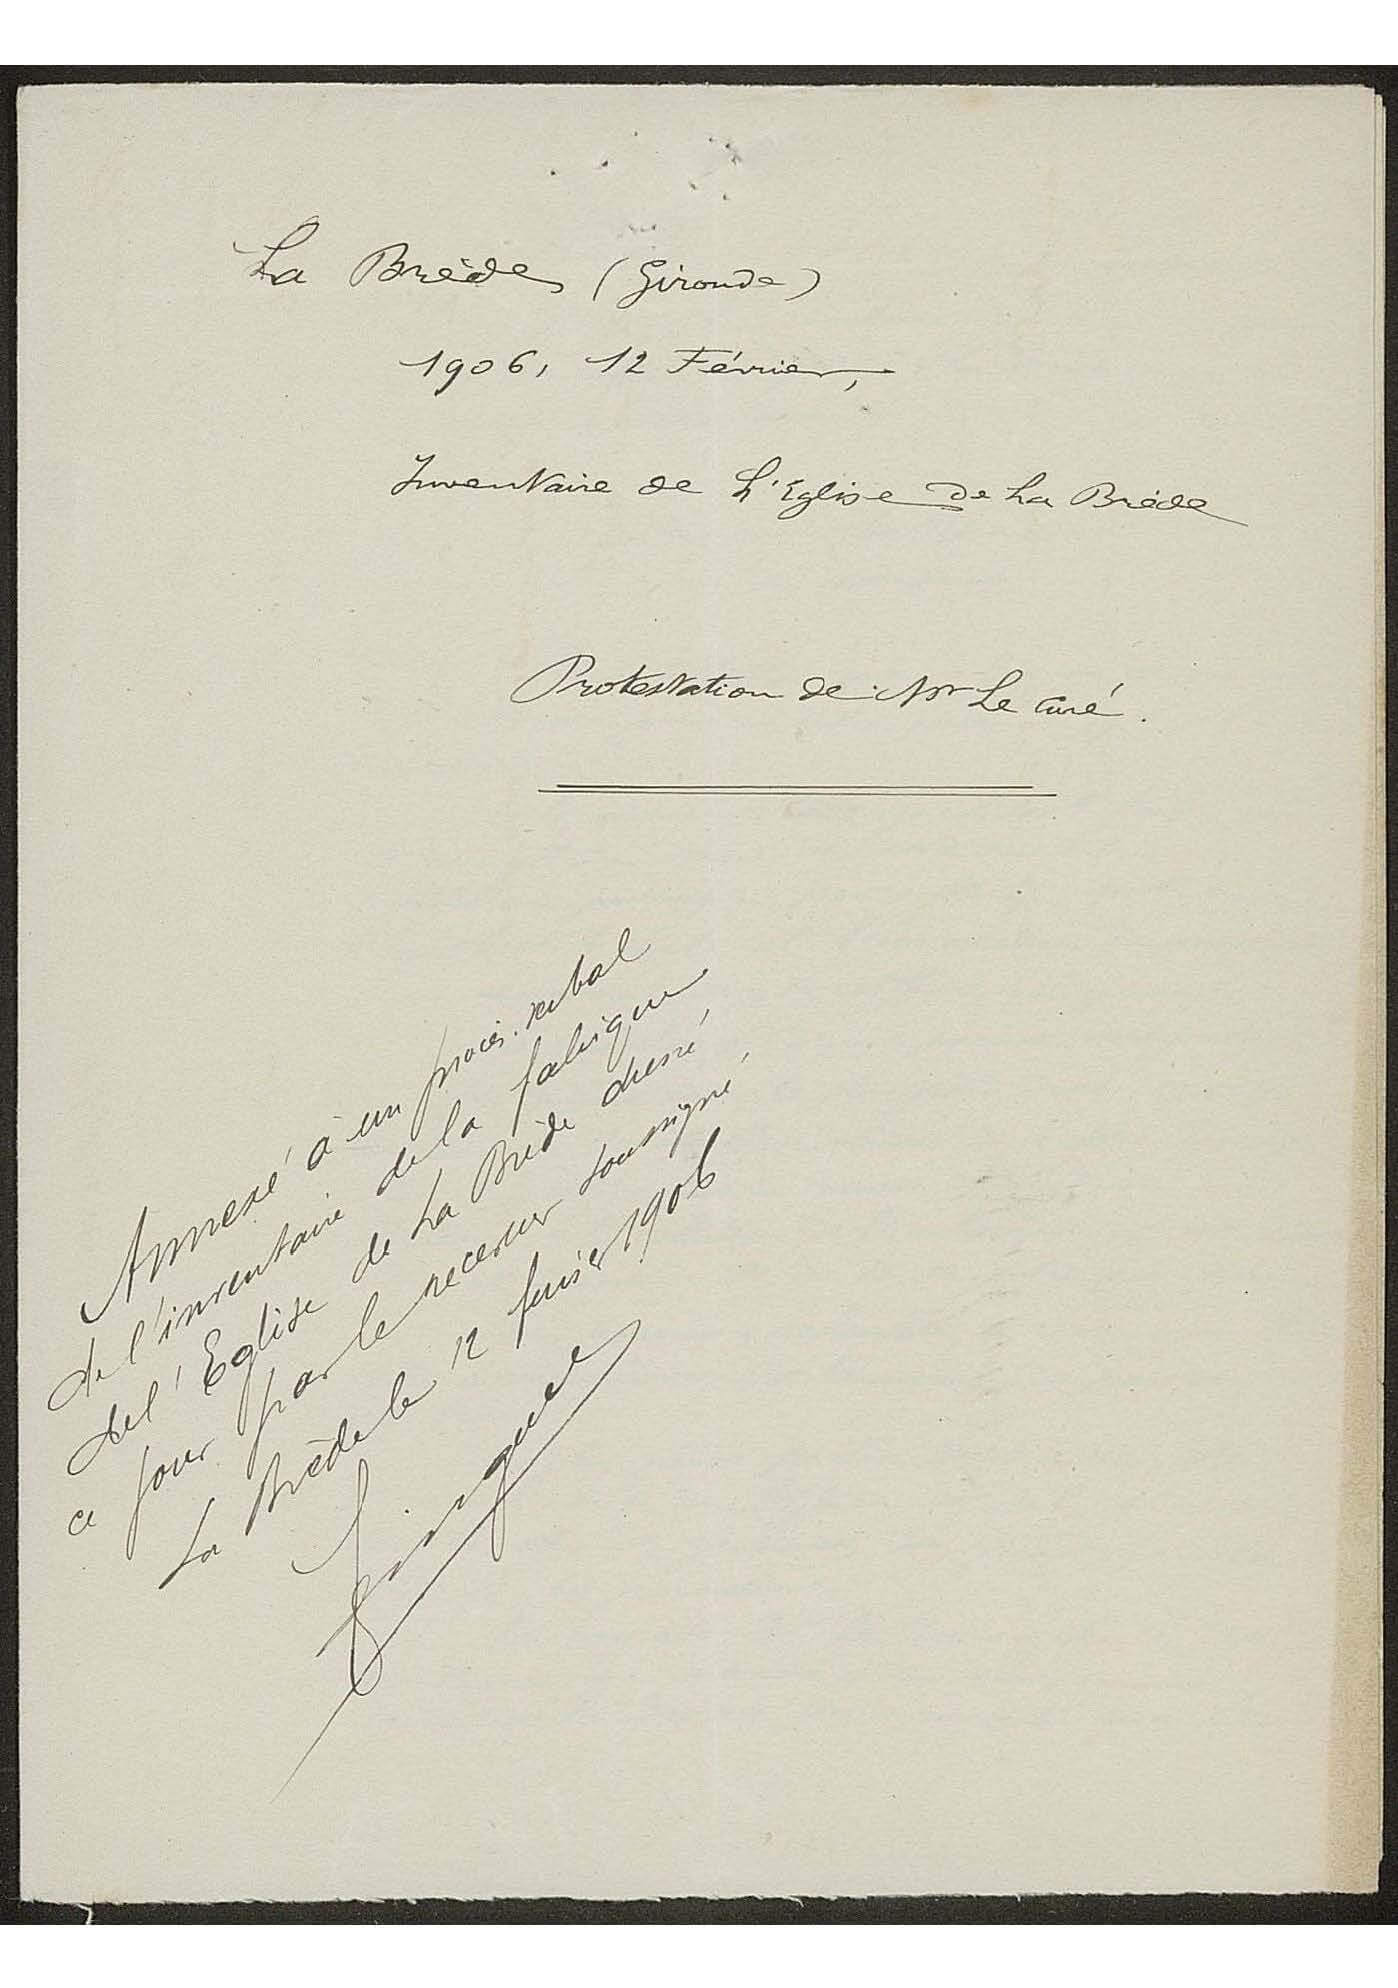 La Brède (Gironde)
1906, 12 Février,
Inventaire de L'Église de La Brède
Protestation de Mr Le Curé.
Annexé à un procès-verbal
de l'inventaire de la fabrique
de l'Eglise de La Brède dressé
ce jour par le receveur soussigné
La Brède le 12 février 1906